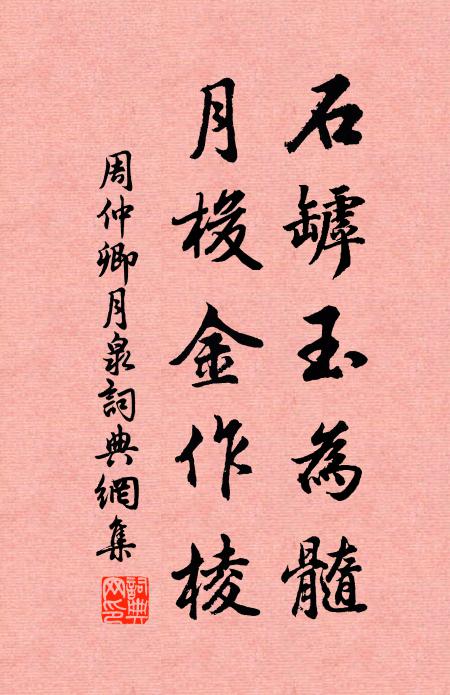 石罅玉為髓
月梭金作棱
周仲卿月泉詞典網集
詞典网印